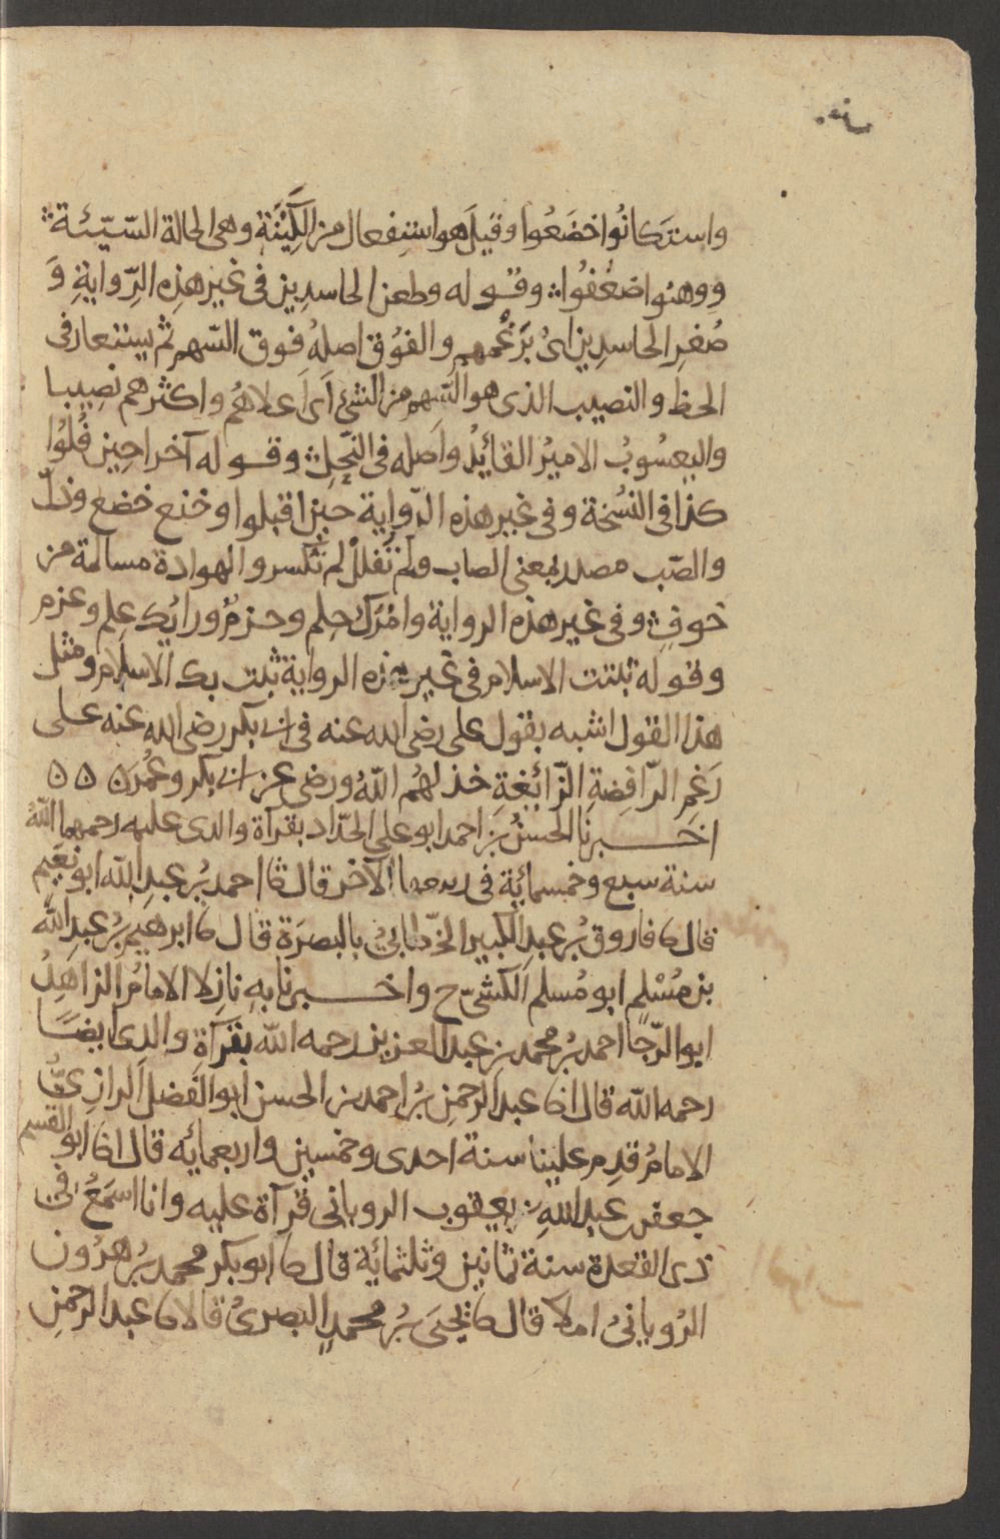 واستَكانُوا خضَعُوا وقيلَ هو استِفعال من الكِيْنَةِ وهى الحالة السّيّئة
ووهنوا ضعُفُوا وقوله وطعن الحاسدين فى غير هذه الرّوايةِ وَ
صُغرِ الحاسدِين اىْ بَرَغْمِهم والفوُق اصلهُ فوق السّهم ثم يستعار فى
الحظ والنصيب الذى هو السّهم من الشئ اى اَعلاهُم واكثرهم نصيبا
واليعسُوبُ الاميرُ القائِدُ واَصله فى النّحلِ وقوله آخرا حين فُلوُا
كذا فى النسُخة وفى غير هذه الرّواية حين اقبلوا وخنع خضع وذلّ
والصّب مصدر بمعنى الصاب ولم تُفلَلْ لم تُكسر والهوادة مسالمة من
خوفٍ وفى غير هذه الرواية وامْرُكَ حِلم وحزمٌ ورايُك عِلم وعزم
وقوله ثبتت الاسلام فى غير هذه الرواية ثبت بك الاسلام ومثل
هذا القول اشبه بقول على رضى الله عنه فى ابى بكر رضى الله عنه على
رَغمِ الرّافضِةِ الزّائغةِ خذلهُم اللّهُ ورضى عن ابى بكر وعُمَرَ ۵ ۵ ۵
اخبرنَا الحسَنُ بن احمد ابو على الحدّاد بقرآة والدى عليه رحمهما اللّهُ
سنة سبع وخمسمائِة فى ربيع الآخر قال ثنا احمد بُن عبدِ اللّه ابو نعَيم
قال ثنا فاروق بُن عبدِ الكبير الخطّابىُ بالبصرَة قال ثنا ابرهيم بُن عبد اللّه
بن مُسْلم ابو مُسلم الكشىّ ح واخبرنا بهِ نازِلا الامامُ الزاهِدُ
ابو الرّجا احمد بُن محمد بن عبد العزيز رحمه اللّه بقرآةِ والدِى ايضًا
رحمه اللّه قال انا عبد الرحمن بُن احمد بن الحسن ابو الفضل الرازِىُّ
الامامُ قدِم علينا سنة احدى وخمسين واربعمائه قال انا ابو القسم
جعفر بن عبد اللهِ بن يعقوب الرويانى قرآة عليه وانا اسمَعُ فى
ذى القعدة سنة ثمانين وثلثمائة قال ثنا ابو بكر محمد بُن هرُون
الرُويانىُ املاءً قال ثنا يحيَى بُن محمدٍ البصرىُ قال ثنا عبد الرحمن